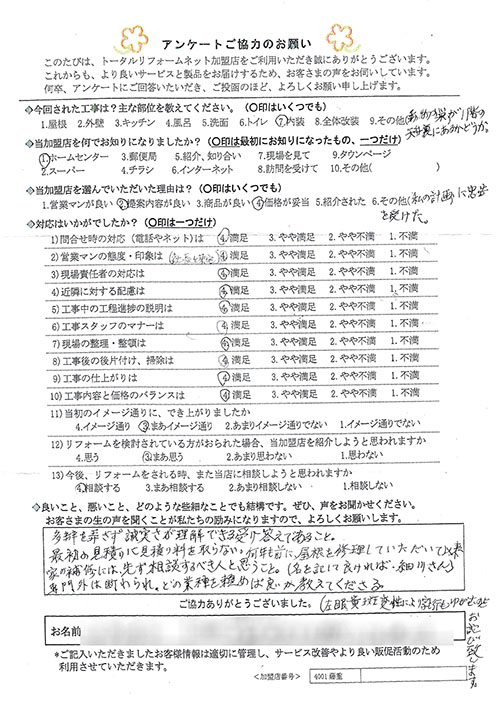 アンケートご協力のお願い
このたびは、トータルリフォームネット加盟店をご利用いただき誠にありがとうございます。
これからも、より良いサービスと製品をお届けするため、お客さまの声をお伺いしています。
何卒、アンケートにご回答いただき、ご投函のほど、よろしくお願い申し上げます。
◇今回された工事は？主な部位を教えてください。（〇印はいくつでも）
1.屋根 2.外壁 3.キッチン 4.風呂 5.洗面 6.トイレ ⑦内装 8.全体改装 9.その他(動物の糞が1階の
天井裏にあるかどうか。
◇当加盟店を何でお知りになりましたか？（〇印は最初にお知りになったもの、一つだけ）
①ホームセンター 3.郵便局 5.紹介、知り合い 7.現場を見て 9.タウンページ
2.スーパー 4.チラシ 6.インターネット 8.訪問を受けて 10.その他( )
◇当加盟店を選んでいただいた理由は？（〇印はいくつでも）
1.営業マンが良い ②提案内容が良い 3.商品が良い ④価格が妥当 5.紹介された 6.その他(私の計画)に
を受けた。
◇対応はいかがでしたか？（〇印は一つだけ）
1)問合せ時の対応（電話やネット)は ④満足 3.やや満足 2.やや不満 1.不満
2)営業マンの態度・印象は ④満足 3.やや満足 2.やや不満 1.不満
3)現場責任者の対応は ④満足 3.やや満足 2.やや不満 1.不満
4)近隣に対する配慮は ④満足 3.やや満足 2.やや不満 1.不満
5)工事中の工程進捗の説明は ④満足 3.やや満足 2.やや不満 1.不満
6)工事スタッフのマナーは ④満足 3.やや満足 2.やや不満 1.不満
7)現場の整理・整頓は ④満足 3.やや満足 2.やや不満 1.不満
8)工事後の後片付け、掃除は ④満足 3.やや満足 2.やや不満 1.不満
9)工事の仕上がりは ④満足 3.やや満足 2.やや不満 1.不満
10)工事内容と価格のバランスは ④満足 3.やや満足 2.やや不満 1.不満
11)当初のイメージ通りに、でき上がりましたか
4.イメージ通り ③まあイメージ通り 2.あまりイメージ通りでない 1.イメージ通りでない
12)リフォームを検討されている方がおられた場合、当加盟店を紹介しようと思われますか
4.思う ③まあ思う 2.あまり思わない 1.思わない
13)今後、リフォームをされる時、また当店に相談しようと思われますか
④相談する 3.まあ相談する 2.あまり相談しない 1.相談しない
◇良いこと、悪いこと、どのような些細なことでも結構です。ぜひ、声をお聞かせください。
お客さまの生の声を聞くことが私たちの励みになりますので、よろしくお願いします。
多弁を弄さず誠実さが理解できる受け答えであること。
最初の見積りに見積り料を取らない。何年か前に屋根を修理していただいて以来
家の補修には、先ず相談するべき人と思うこと。(名を記して良ければ・細川さん)
専門外は断わられ、どの業種を頼めば良いか教えてくださる。
ご協力ありがとうございました。(左眼黄斑変性により
お詫び致します。
お名前
*ご記入いただきましたお客様情報は適切に管理し、サービス改善やより良い販促活動のため
利用させていただきます。
<加盟店番号> 4001 藤重